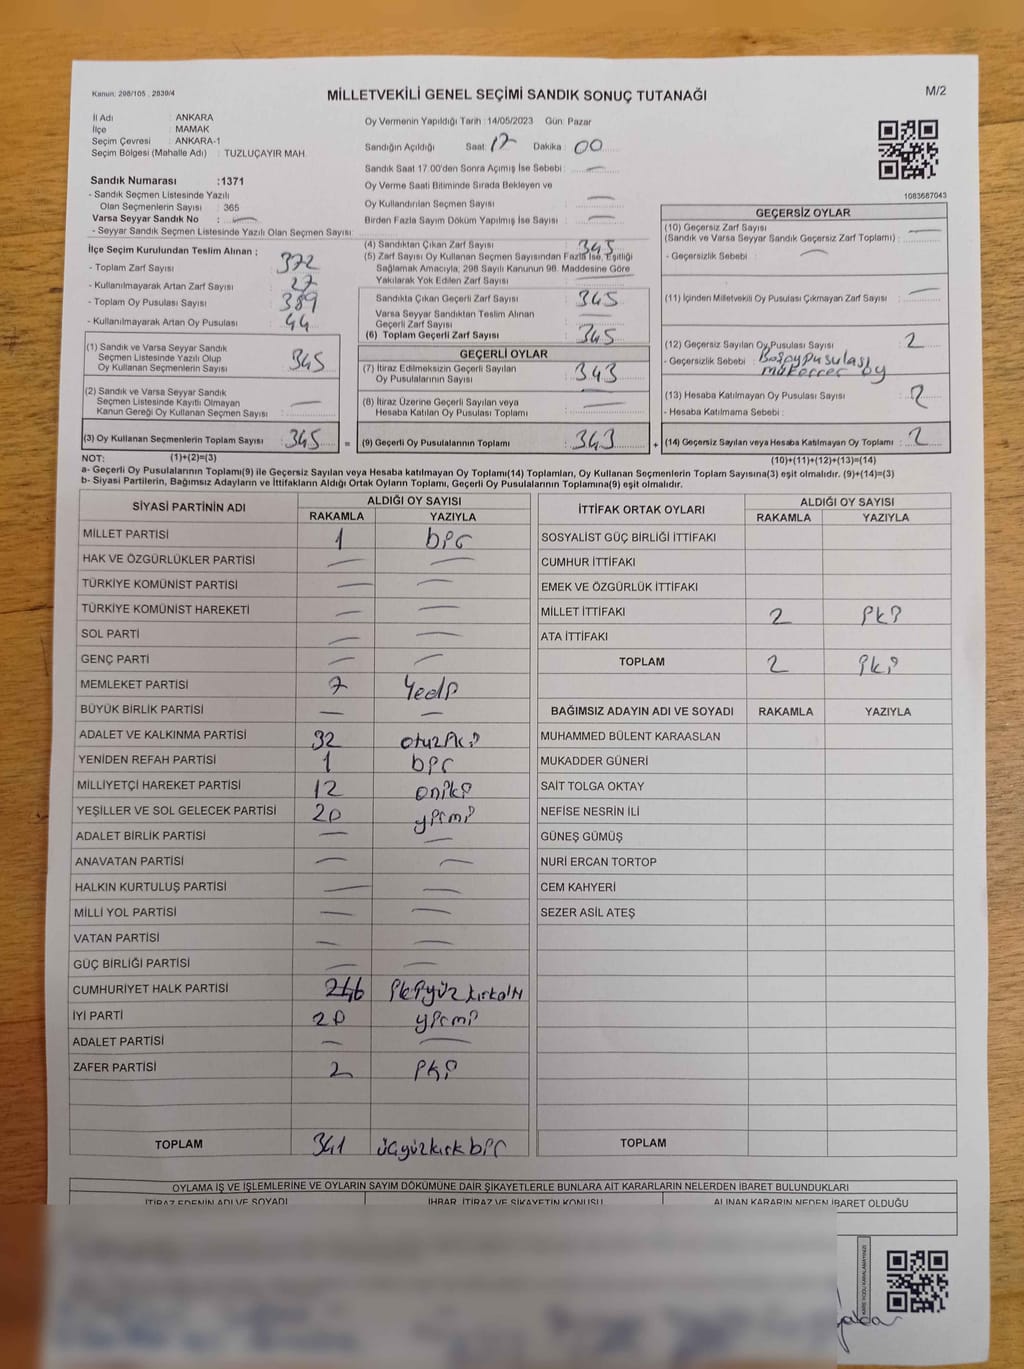 Kanun: 298/105 , 2839/4
MİLLETVEKİLİ GENEL SEÇİMİ SANDIK SONUÇ TUTANAĞI
M/2
İl Adı : ANKARA
İlçe : MAMAK
Seçim Çevresi : ANKARA-1
Seçim Bölgesi (Mahalle Adı) : TUZLUÇAYIR MAH.
Sandık Numarası :1371
- Sandık Seçmen Listesinde Yazılı
Olan Seçmenlerin Sayısı : 365
Varsa Seyyar Sandık No : —
- Seyyar Sandık Seçmen Listesinde Yazılı Olan Seçmen Sayısı:
Oy Vermenin Yapıldığı Tarih :14/05/2023 Gün: Pazar
Sandığın Açıldığı Saat: 17 Dakika : 00
Sandık Saat 17:00'den Sonra Açımış İse Sebebi : —
Oy Verme Saati Bitiminde Sırada Bekleyen ve
Oy Kullandırılan Seçmen Sayısı : —
Birden Fazla Sayım Döküm Yapılmış İse Sayısı : —
1083687043
İlçe Seçim Kurulundan Teslim Alınan :
- Toplam Zarf Sayısı : 372
- Kullanılmayarak Artan Zarf Sayısı : 27
- Toplam Oy Pusulası Sayısı : 389
- Kullanılmayarak Artan Oy Pusulası : 44
(1) Sandık ve Varsa Seyyar Sandık
Seçmen Listesinde Yazılı Olup
Oy Kullanan Seçmenlerin Sayısı : 345
(2) Sandık ve Varsa Seyyar Sandık
Seçmen Listesinde Kayıtlı Olmayan
Kanun Gereği Oy Kullanan Seçmen Sayısı : —
(3) Oy Kullanan Seçmenlerin Toplam Sayısı : 345 =
(4) Sandıktan Çıkan Zarf Sayısı : 345
(5) Zarf Sayısı Oy Kullanan Seçmen Sayısından Fazla İse, Eşitliği
Sağlamak Amacıyla, 298 Sayılı Kanunun 98. Maddesine Göre
Yakılarak Yok Edilen Zarf Sayısı : —
Sandıkta Çıkan Geçerli Zarf Sayısı : 345
Varsa Seyyar Sandıktan Teslim Alınan
Geçerli Zarf Sayısı : —
(6) Toplam Geçerli Zarf Sayısı : 345
GEÇERLİ OYLAR
(7) İtiraz Edilmeksizin Geçerli Sayılan
Oy Pusulalarının Sayısı : 343
(8) İtiraz Üzerine Geçerli Sayılan veya
Hesaba Katılan Oy Pusulası Toplamı : —
(9) Geçerli Oy Pusulalarının Toplamı : 343 +
GEÇERSİZ OYLAR
(10) Geçersiz Zarf Sayısı
(Sandık ve Varsa Seyyar Sandık Geçersiz Zarf Toplamı) : —
- Geçersizlik Sebebi : —
(11) İçinden Milletvekili Oy Pusulası Çıkmayan Zarf Sayısı : —
(12) Geçersiz Sayılan Oy Pusulası Sayısı : 2
- Geçersizlik Sebebi : Boşoypusulası
mükerrer oy
(13) Hesaba Katılmayan Oy Pusulası Sayısı : 2
- Hesaba Katılmama Sebebi :
(14) Geçersiz Sayılan veya Hesaba Katılmayan Oy Toplamı : 2
NOT: (1)+(2)=(3)
(10)+(11)+(12)+(13)=(14)
a- Geçerli Oy Pusulalarının Toplamı(9) ile Geçersiz Sayılan veya Hesaba katılmayan Oy Toplamı(14) Toplamları, Oy Kullanan Seçmenlerin Toplam Sayısına(3) eşit olmalıdır. (9)+(14)=(3)
b- Siyasi Partilerin, Bağımsız Adayların ve İttifakların Aldığı Ortak Oyların Toplamı, Geçerli Oy Pusulalarının Toplamına(9) eşit olmalıdır.
SİYASİ PARTİNİN ADI
ALDIĞI OY SAYISI
RAKAMLA YAZIYLA
MİLLET PARTİSİ 1 bir
HAK VE ÖZGÜRLÜKLER PARTİSİ — —
TÜRKİYE KOMÜNİST PARTİSİ — —
TÜRKİYE KOMÜNİST HAREKETİ — —
SOL PARTİ — —
GENÇ PARTİ — —
MEMLEKET PARTİSİ 7 Yedi
BÜYÜK BİRLİK PARTİSİ — —
ADALET VE KALKINMA PARTİSİ 32 otuziki
YENİDEN REFAH PARTİSİ 1 bir
MİLLİYETÇİ HAREKET PARTİSİ 12 oniki
YEŞİLLER VE SOL GELECEK PARTİSİ 20 yirmi
ADALET BİRLİK PARTİSİ — —
ANAVATAN PARTİSİ — —
HALKIN KURTULUŞ PARTİSİ — —
MİLLİ YOL PARTİSİ — —
VATAN PARTİSİ — —
GÜÇ BİRLİĞİ PARTİSİ — —
CUMHURİYET HALK PARTİSİ 246 ikiyüz kırkaltı
İYİ PARTİ 20 yirmi
ADALET PARTİSİ — —
ZAFER PARTİSİ 2 iki
TOPLAM 341 üçyüzkırk bir
İTTİFAK ORTAK OYLARI
ALDIĞI OY SAYISI
RAKAMLA YAZIYLA
SOSYALİST GÜÇ BİRLİĞİ İTTİFAKI
CUMHUR İTTİFAKI
EMEK VE ÖZGÜRLÜK İTTİFAKI
MİLLET İTTİFAKI 2 iki
ATA İTTİFAKI
TOPLAM 2 iki
BAĞIMSIZ ADAYIN ADI VE SOYADI RAKAMLA YAZIYLA
MUHAMMED BÜLENT KARAASLAN
MUKADDER GÜNERİ
SAİT TOLGA OKTAY
NEFİSE NESRİN İLİ
GÜNEŞ GÜMÜŞ
NURİ ERCAN TORTOP
CEM KAHYERİ
SEZER ASİL ATEŞ
TOPLAM
OYLAMA İŞ VE İŞLEMLERİNE VE OYLARIN SAYIM DÖKÜMÜNE DAİR ŞİKAYETLERLE BUNLARA AİT KARARLARIN NELERDEN İBARET BULUNDUKLARI
İTİRAZ EDENİN ADI VE SOYADI İHBAR, İTİRAZ VE ŞİKAYETİN KONUSU ALINAN KARARIN NEDEN İBARET OLDUĞU